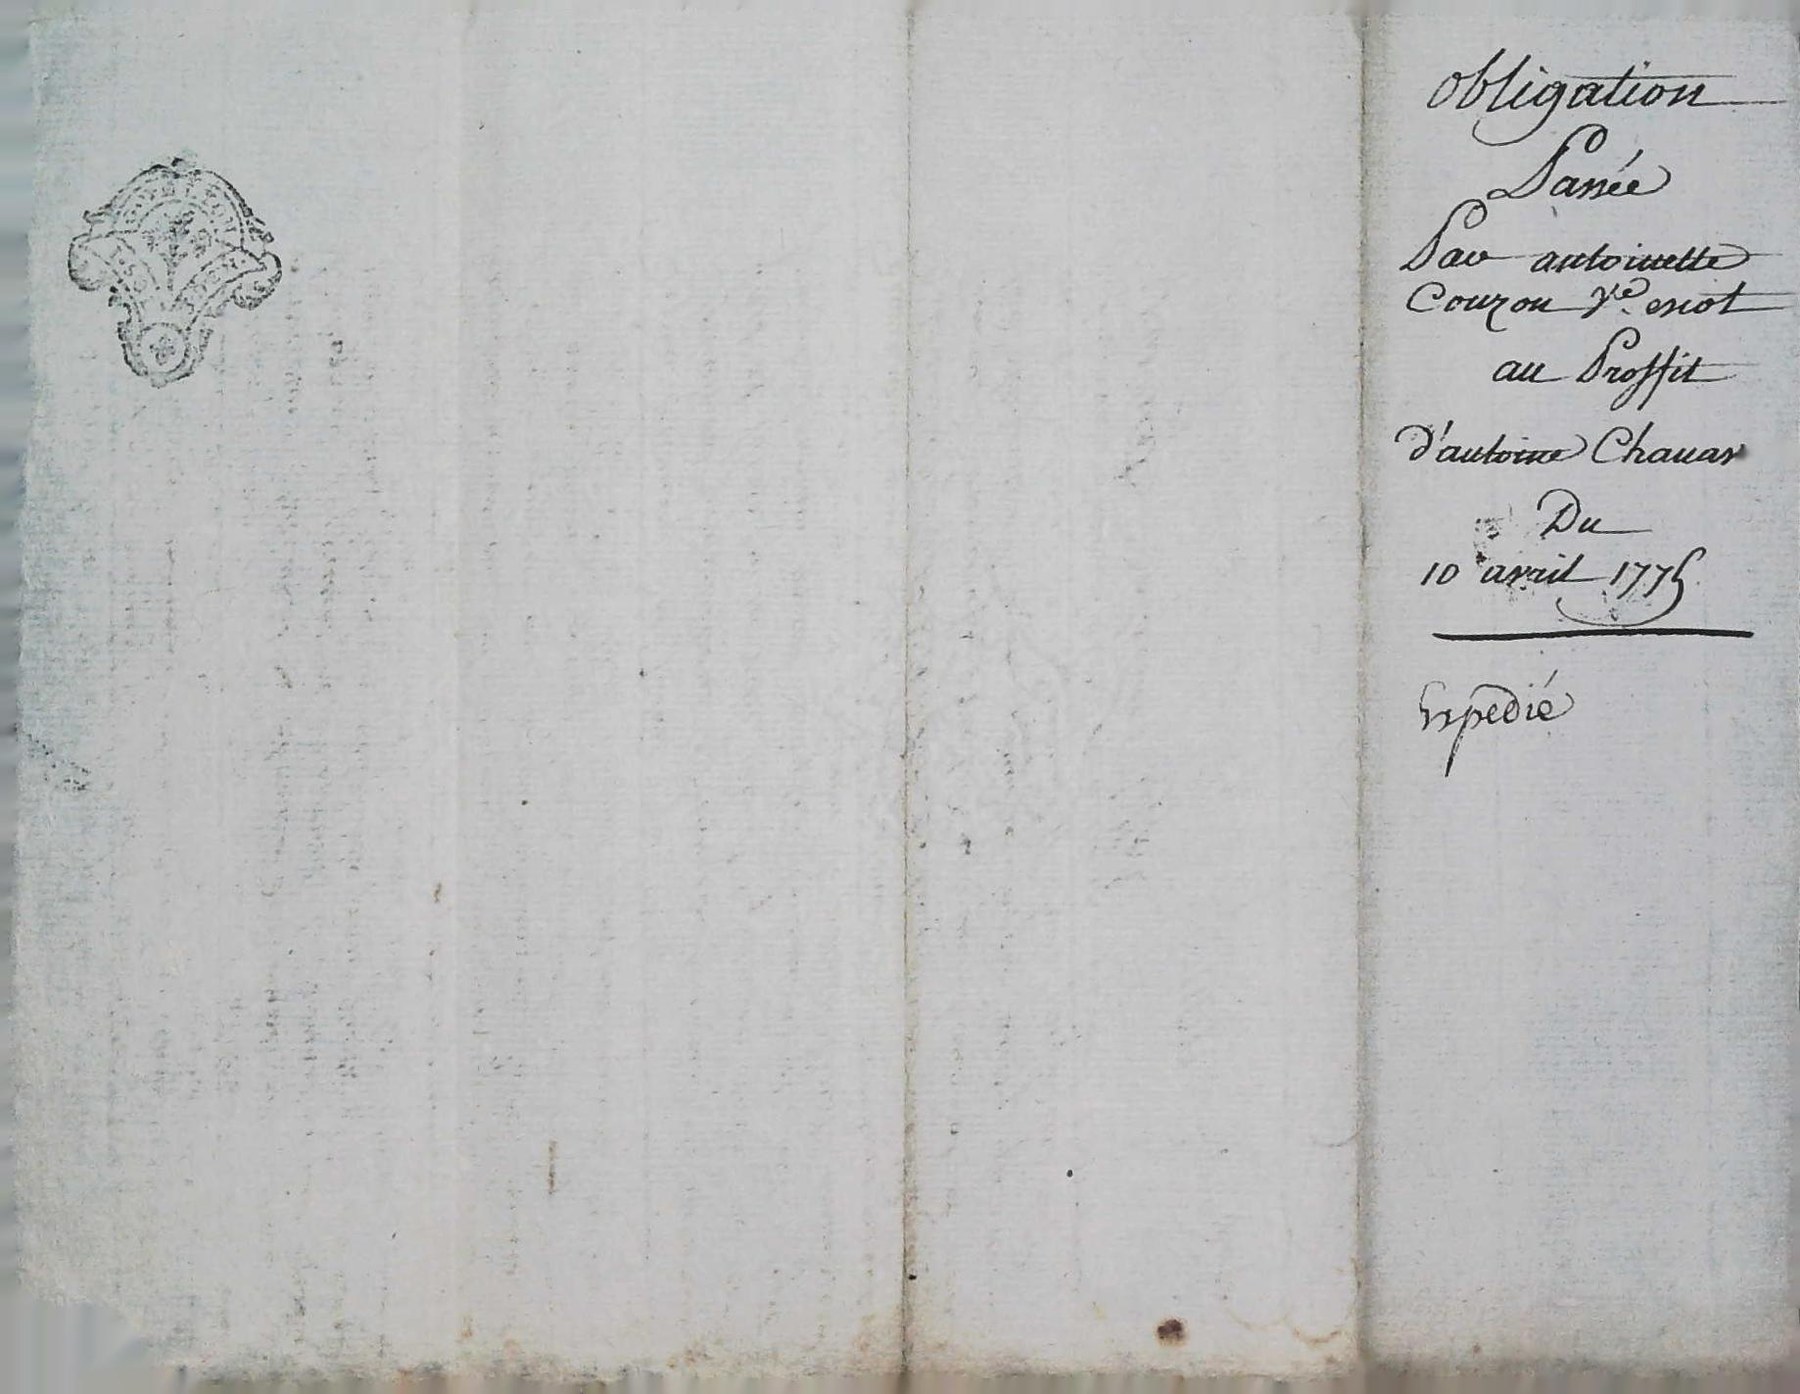 obligation
Passée
Par antoinette
Couzon Ve. eriot
au Proffit
d'antoine Chauar
Du
10 avril 1775
Expedié